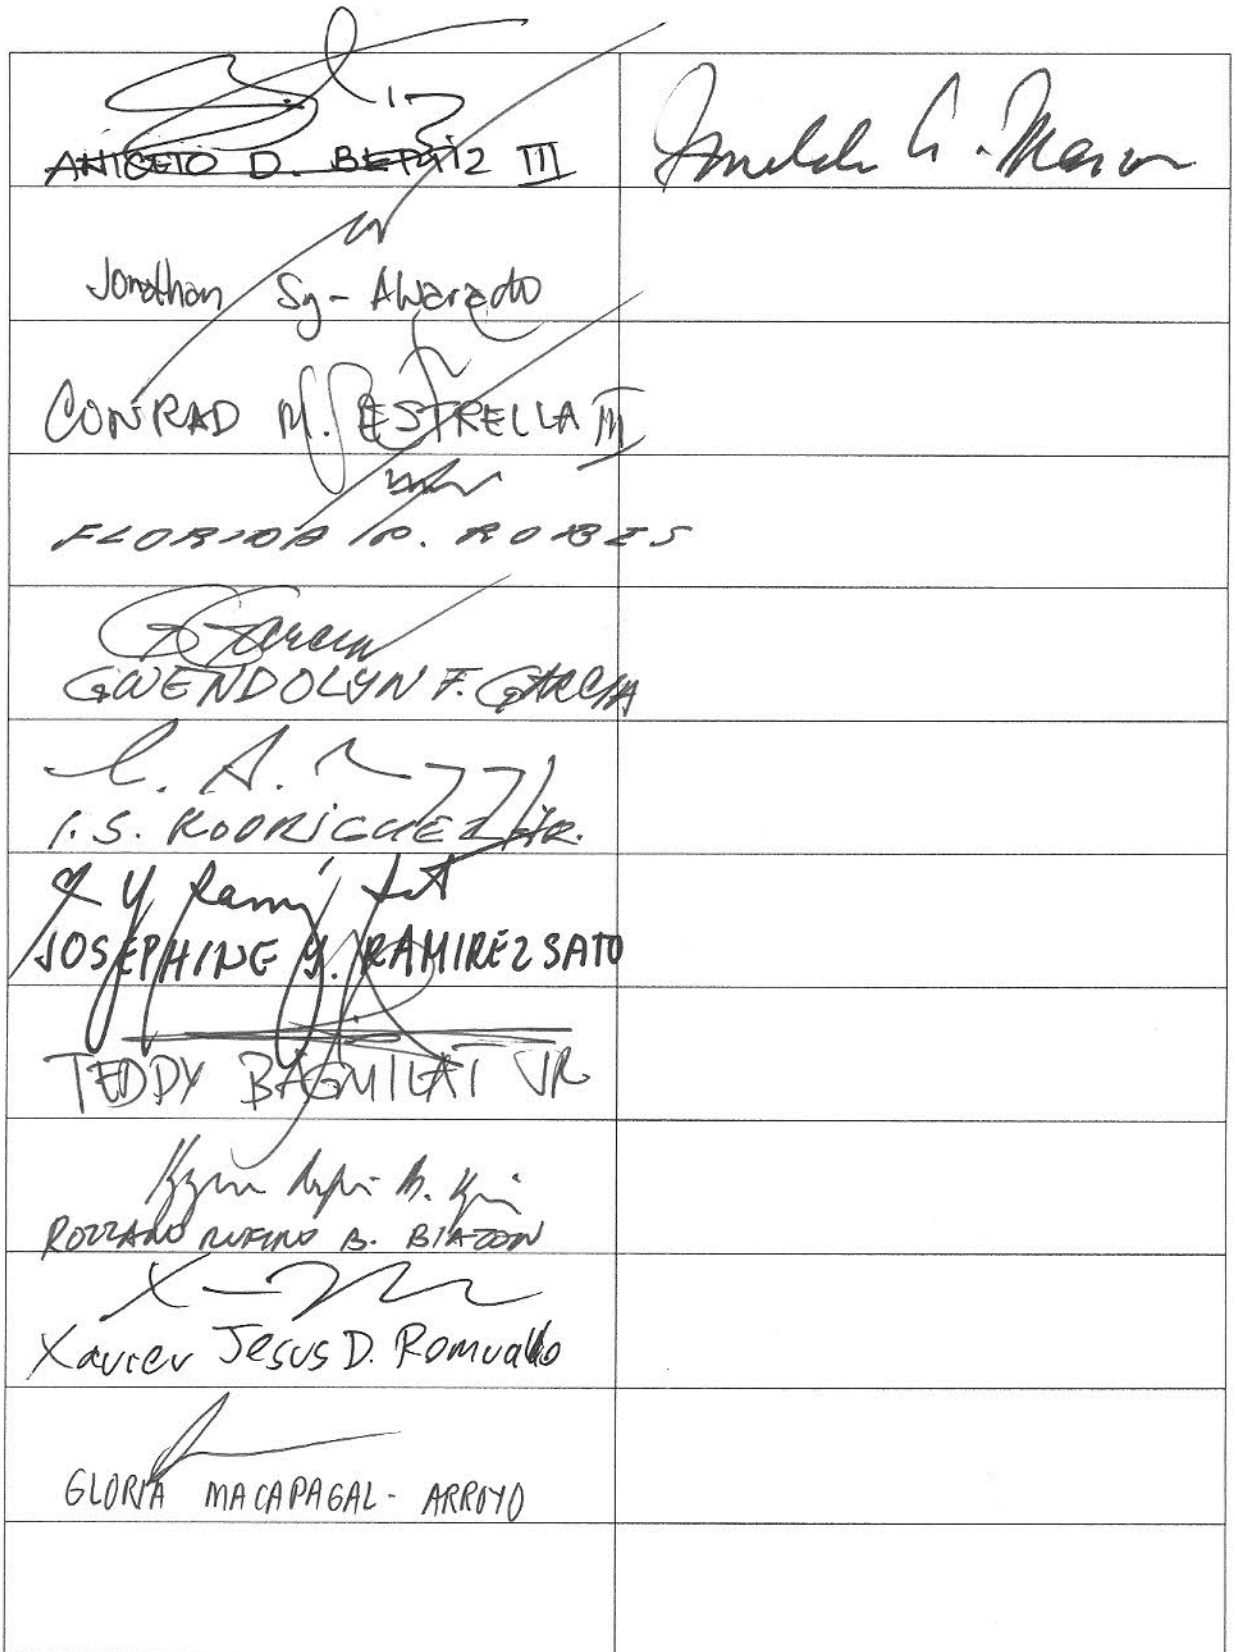 ANICETO D. BERTIZ III
Imelda R. Marcos
Jonathan Sy-Alvarado
CONRAD M. ESTRELLA III
FLORIDA P. ROBES
G Garcia
GWENDOLYN F. GARCIA
I.S. RODRIGUEZ JR.
JOSEPHINE Y. RAMIREZ SATO
TEDDY BAGUILAT JR
ROZZANO RUFINO B. BIAZON
Xavier Jesus D. Romualdo
GLORIA MACAPAGAL - ARROYO